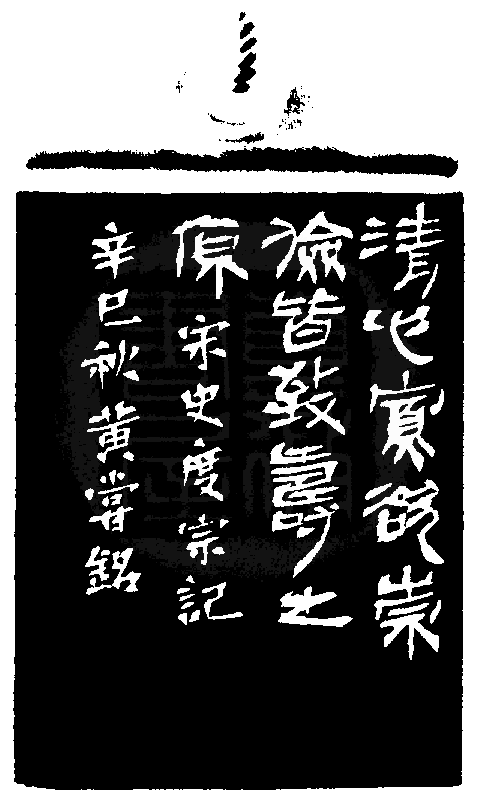 清心寡欲崇
儉皆致壽之
原 宋史度宗記
辛巳秋黃嘗銘